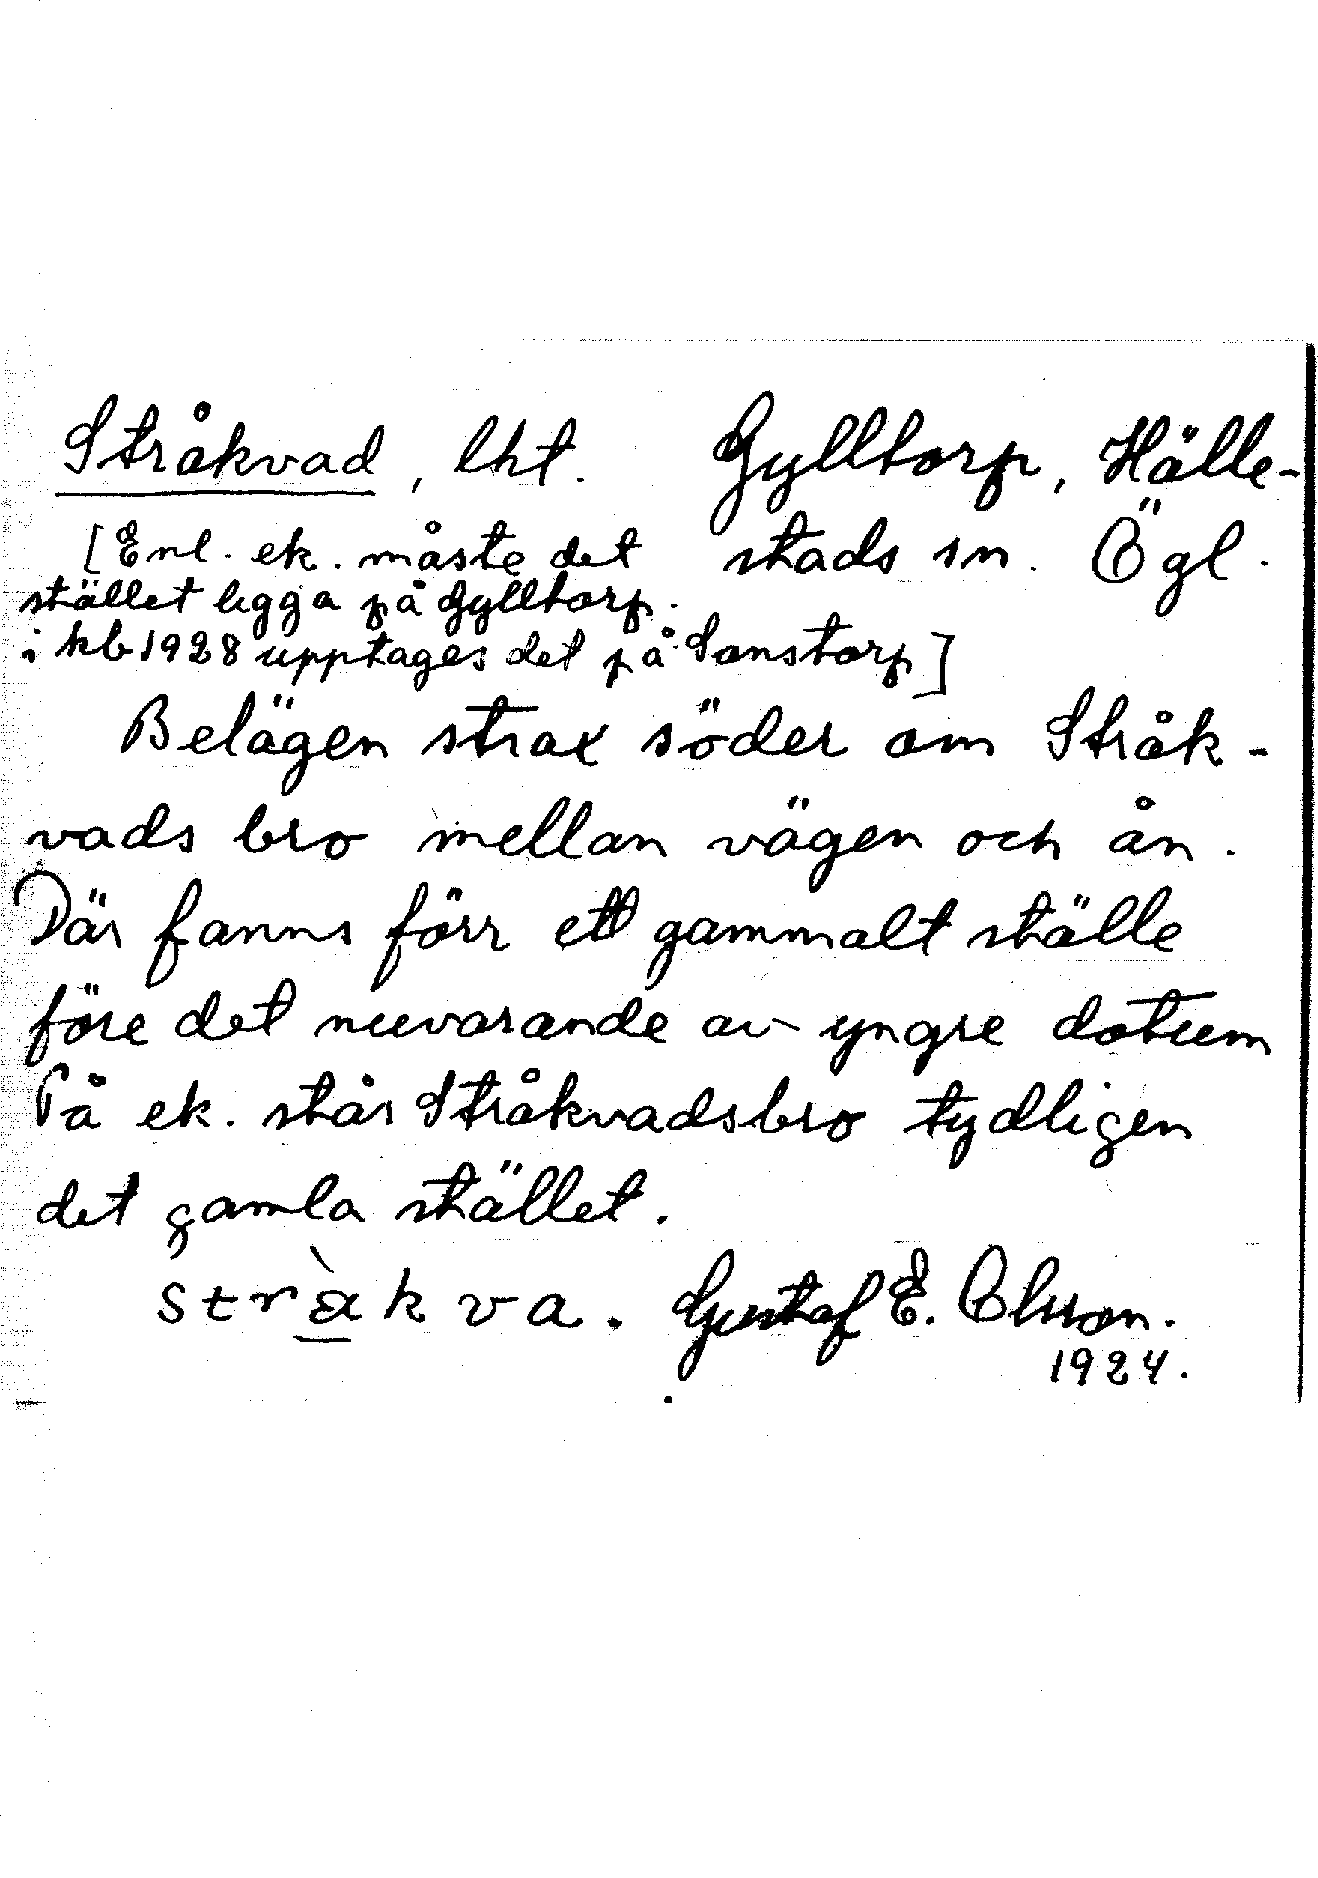 Stråkvad, lht. Gylltorp, Hälle-
stads sn. Ögl.
[Enl. ek. måste det
stället ligga på Gylltorp.
i kb 1928 upptages det på Sonstorp]
Belägen strax söder om Stråk-
vads bro mellan vägen och ån.
Där fanns förr ett gammalt ställe
före det nuvarande av yngre datum
På ek. står Stråkvadsbro tydligen
det gamla stället.
stràkva. Gustaf E. Olsson.
1924.